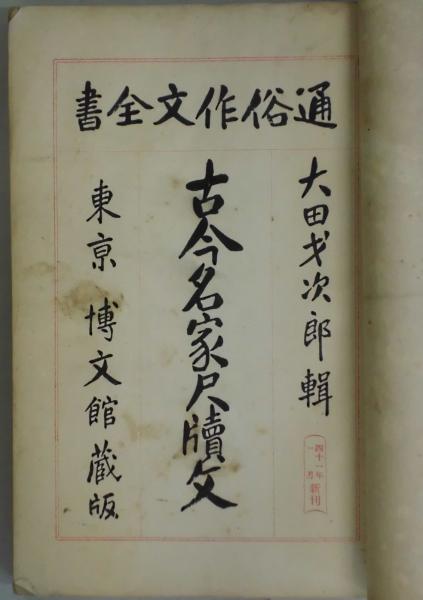 通俗作文全書
大田才次郎輯
古今名家尺牘文
東亰 博文館蔵版
四十一年
一月
新刊